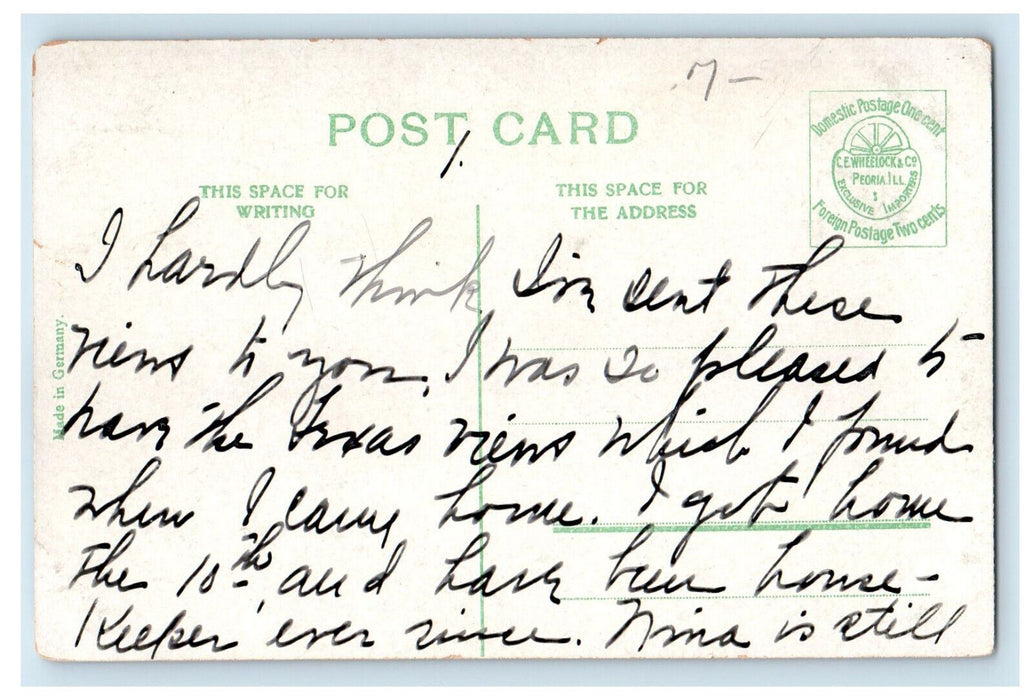 7-
POST CARD
1.
Domestic Postage One cent
C.E. WHEELOCK & CO
PEORIA, ILL
EXCLUSIVE IMPORTERS
Foreign Postage Two cents
THIS SPACE FOR
WRITING
THIS SPACE FOR
THE ADDRESS
Made in Germany.
I hardly think I've sent these
views to you. I was so pleased to
have the Texas views which I found
when I came home. I got home
the 10th, and have been house-
keeper ever since. Nina is still